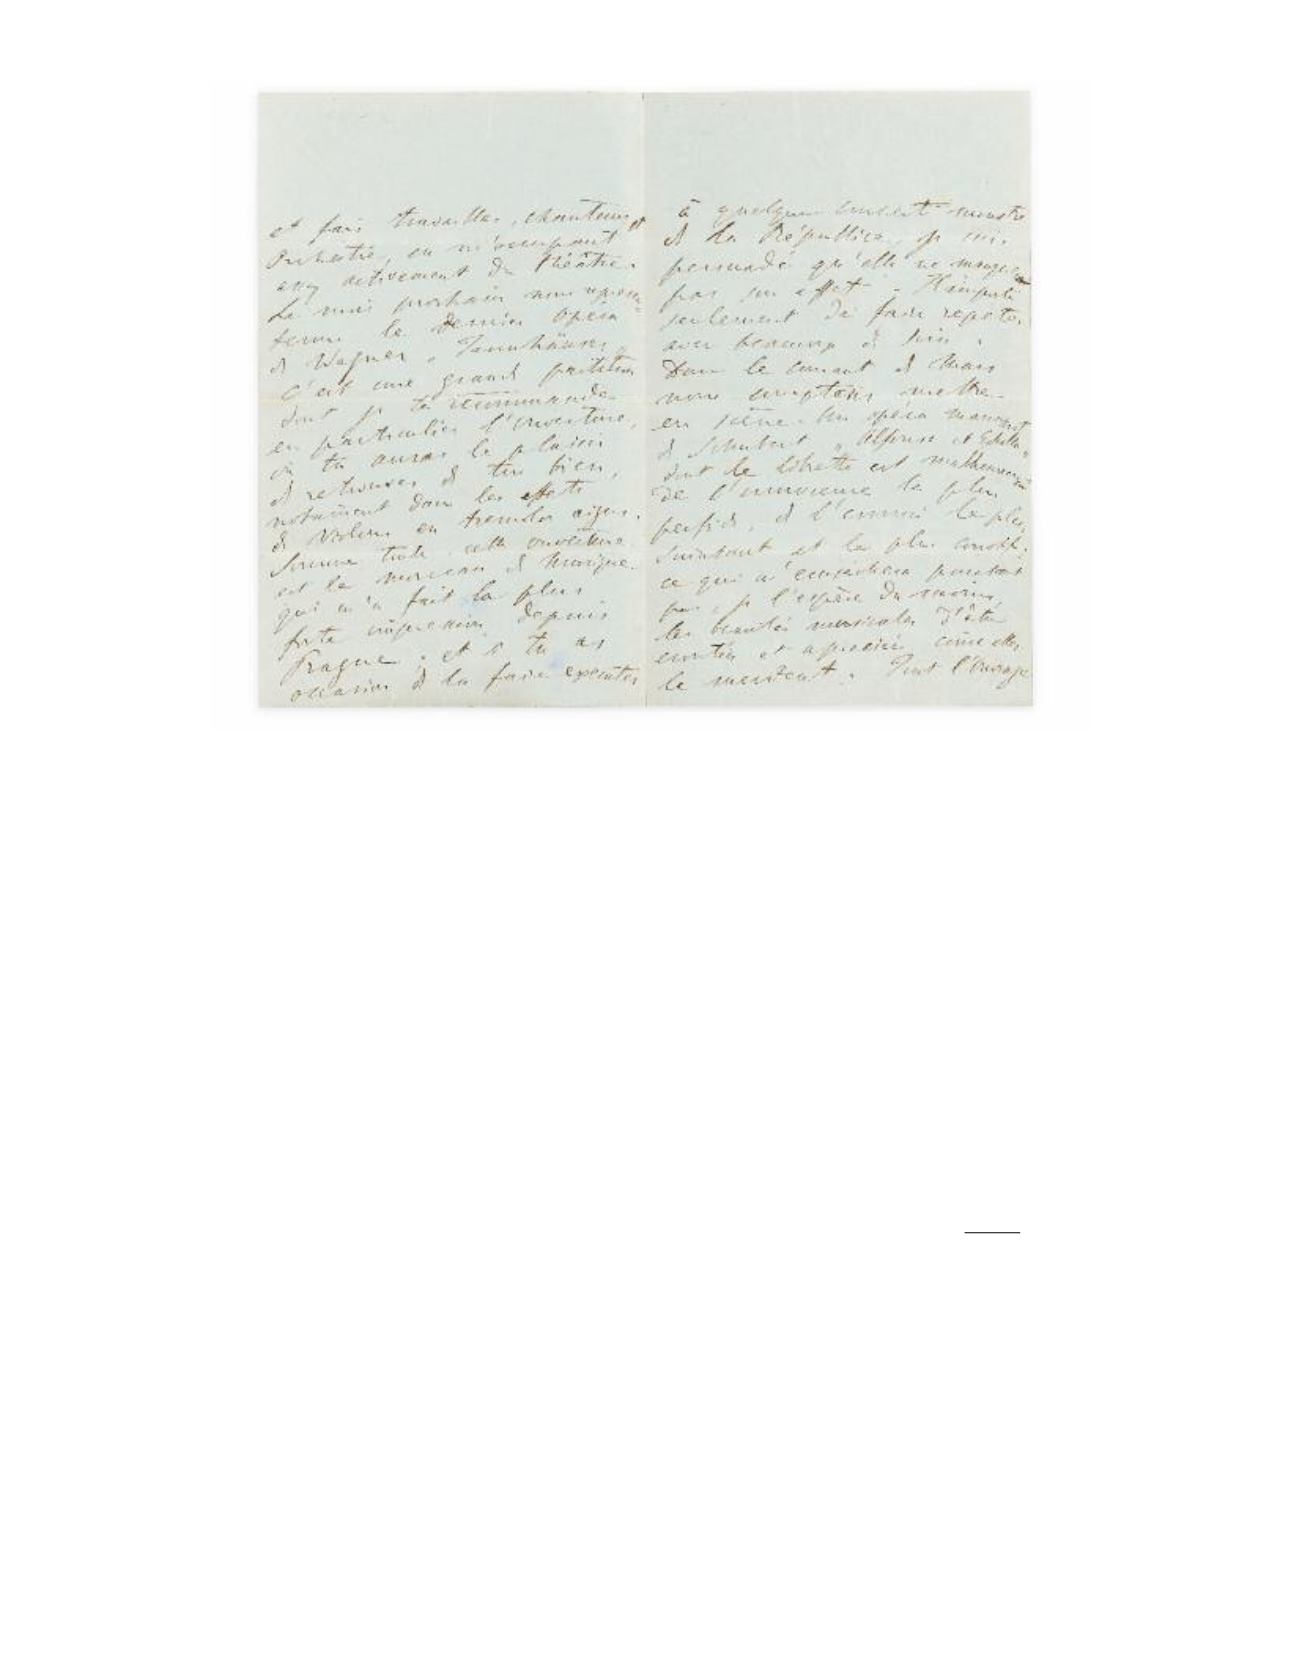 et fais travailler, chanteurs et
Orchestre, en m'occupant
assez activement du théâtre.
Le mois prochain nous représen=
terons le dernier opéra
de Wagner „Tannhäuser„
C'est une grande partition
dont je te recommande
en particulier l'ouverture,
où tu auras le plaisir
de retrouver de ton bien,
notament dans les effets
de violons en tremolos aigus.
Somme toute, cette ouverture
est le morceau de Musique
qui m'a fait la plus
forte impression depuis
Prague, et si tu as
occasion de la faire exécuter
à quelque concert monstre
de la République, je suis
persuadé qu'elle ne manquera
pas son effet. Il importe
seulement de faire répéter
avec beaucoup de soin.
Dans le courant de Mars
nous comptons mettre
en scène un opéra manuscrit
de Schubert „Alfonse et Estella„
dont le libretto est malheureusement
de l'ennui le plus
perfide, de l'ennui le plus
suintant et le plus
ce qui n'empêchera pourtant
pas, je l'espère du moins,
les beautés musicales d'être
et appréciées come elles
le méritent. Tout l'ouvrage